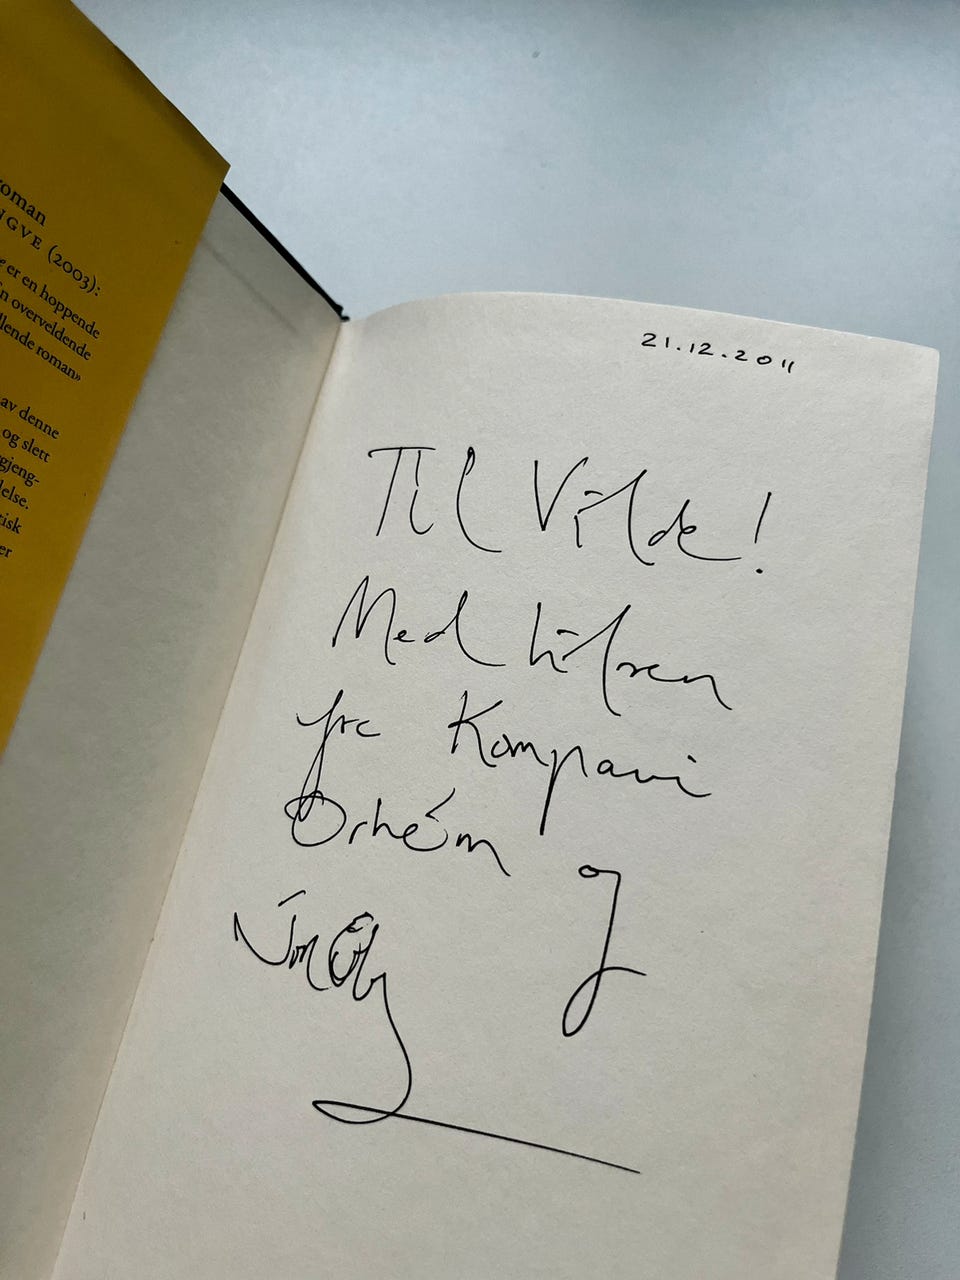 roman
NGVE (2003):
er en hoppende
n overveldende
llende roman»
av denne
og slett
gjeng-
lelse.
tisk
er
21.12.2011
Til Vilde!
Med hilsen
fra Kompani
Orhéim
og